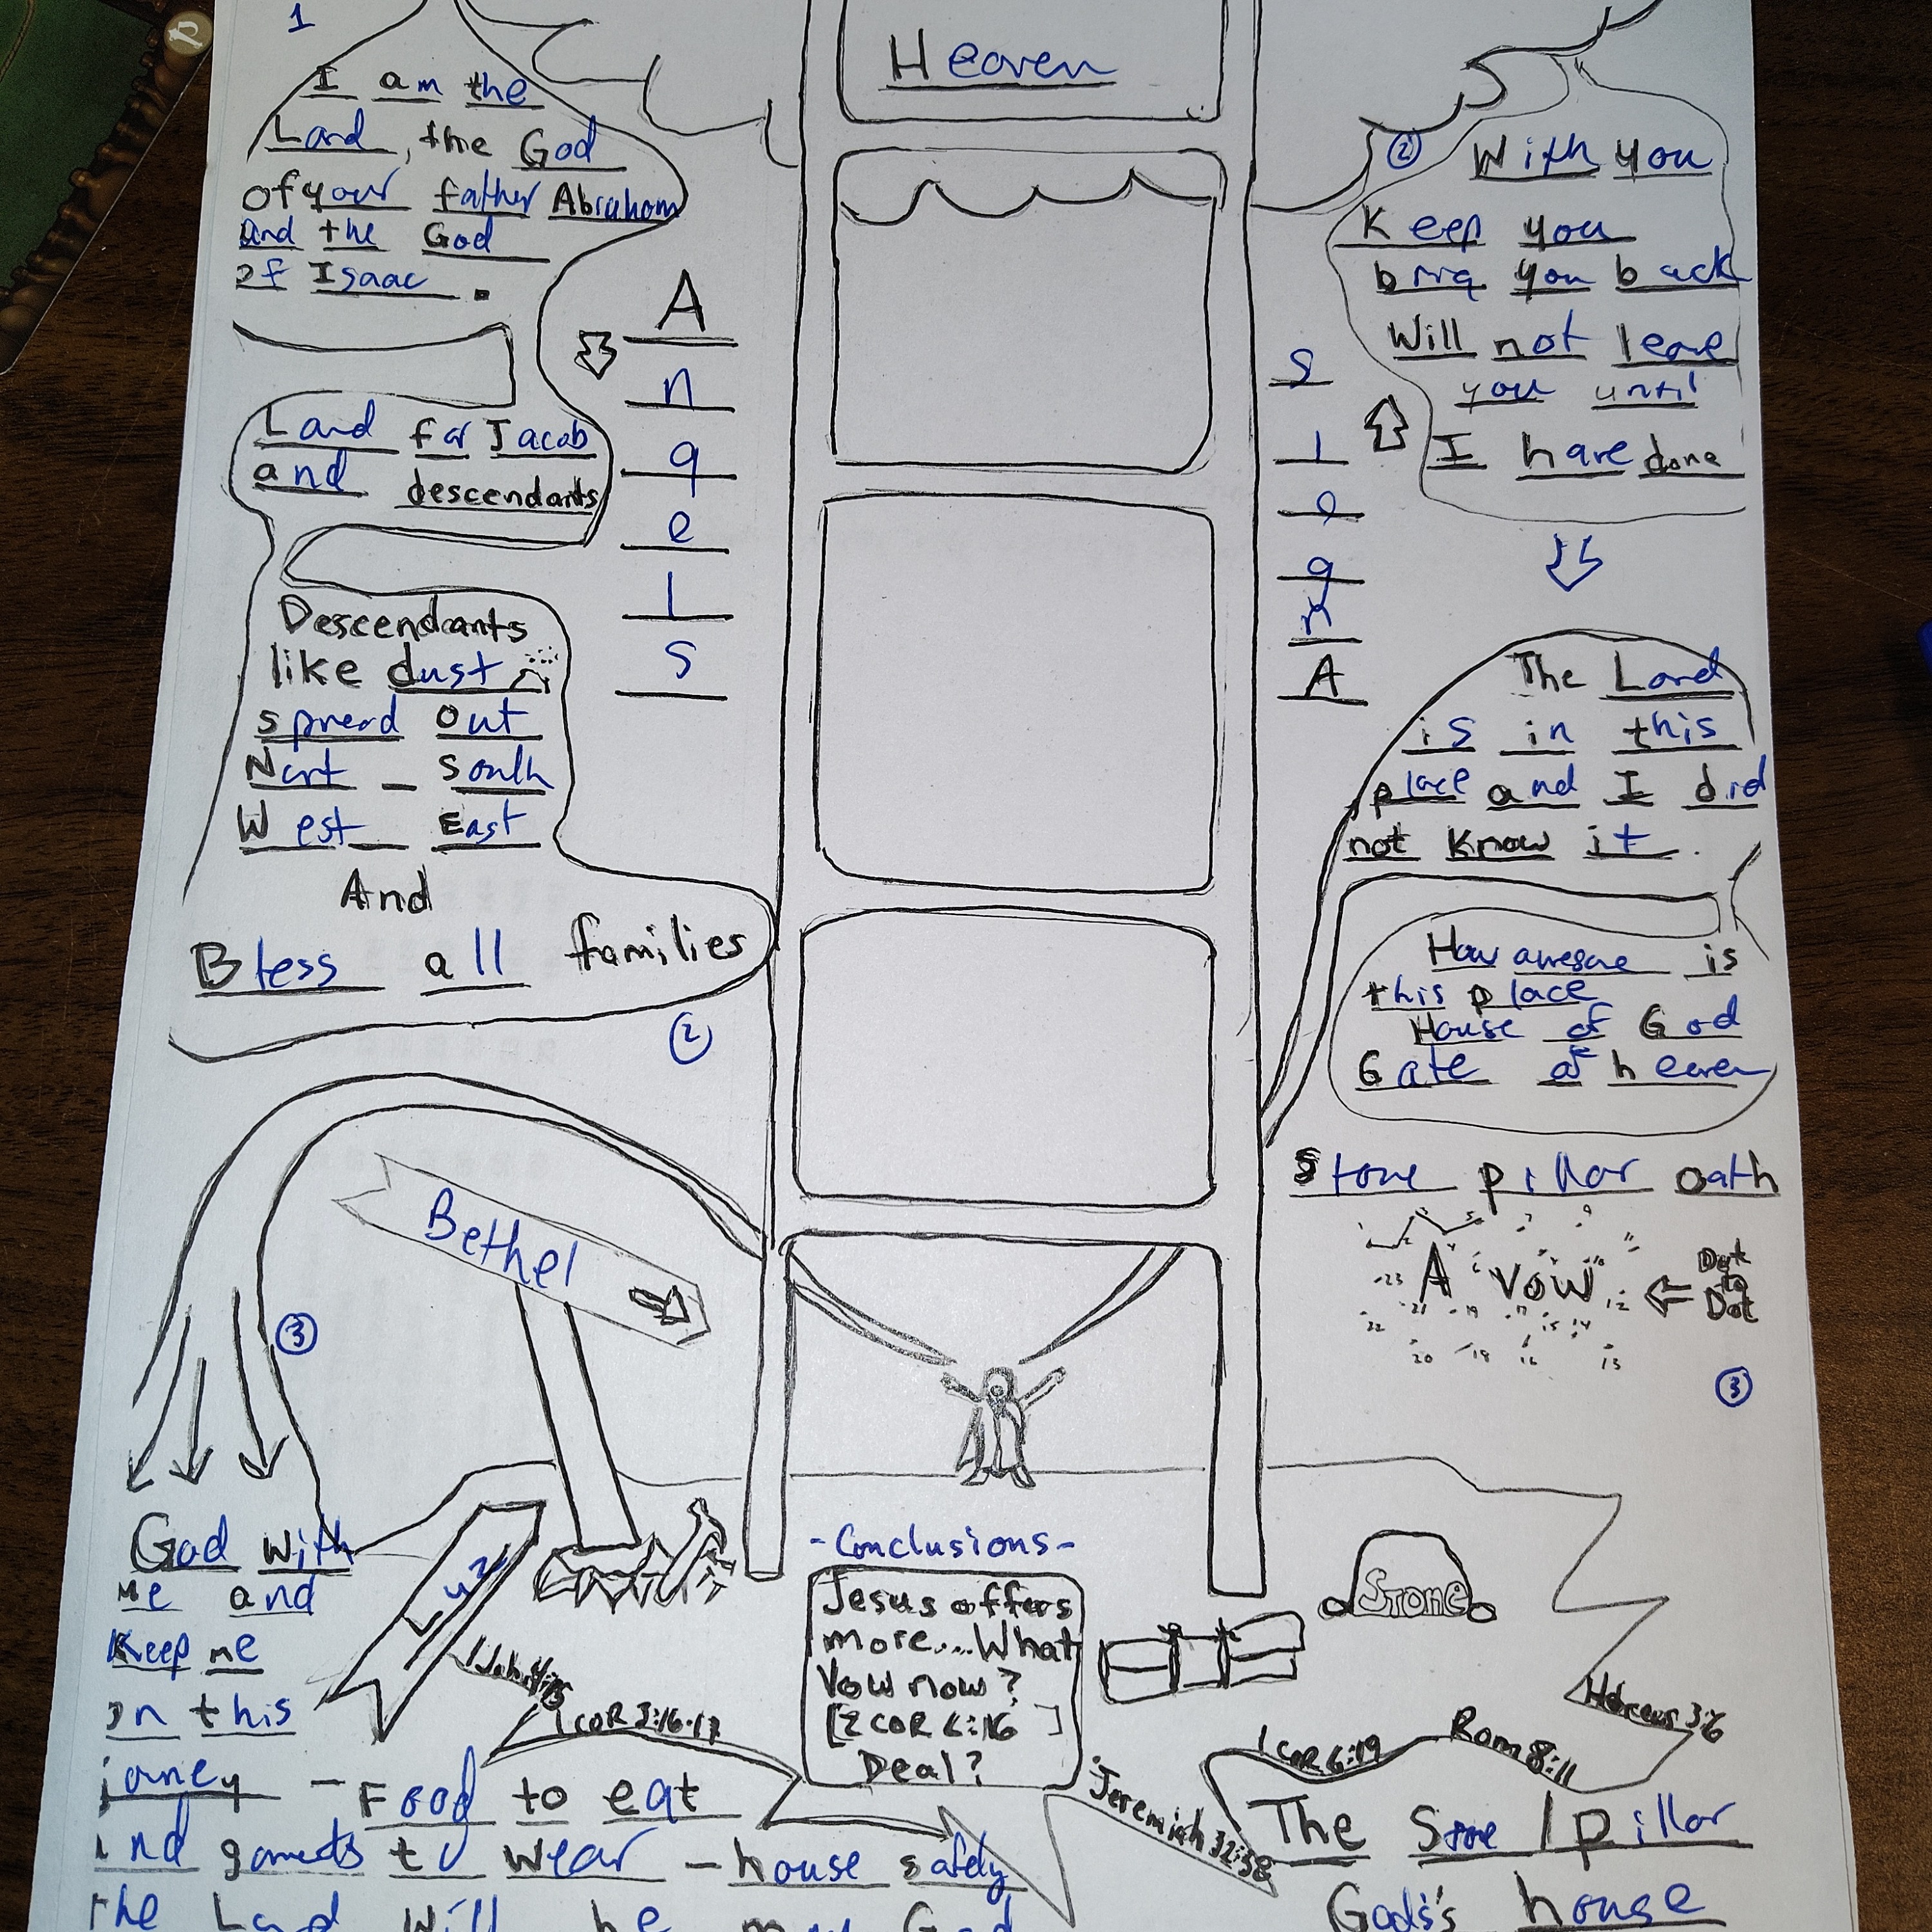 1
Heaven
I am the
Lord, the God
of your father Abraham
And the God
of Isaac.
Land for Jacob
and descendants
Descendants
like dust
spread out
Nort - South
West - East
And
Bless all families
2
A
n
g
e
l
s
2
With you
Keep you
bring you back
Will not leave
you until
I have done
s
l
e
g
n
A
The Lord
is in this
place and I did
not know it.
How awesome is
this place
House of God
Gate of heaven
Stone pillar oath
A vow
Dot
to
Dot
3
Bethel
3
God with
me and
Keep me
on this
Luz
-Conclusions-
Jesus offers
more....What
Vow now?
[2 COR 6:16]
Deal?
STONE
1 COR 3:16-17
Jeremiah 32:38
1 COR 6:19
Rom 8:11
Hebrews 3:6
jorney - Food to eat
and garments to wear - house safely
The Lord will be my God
The Stone / pillar
God's's house